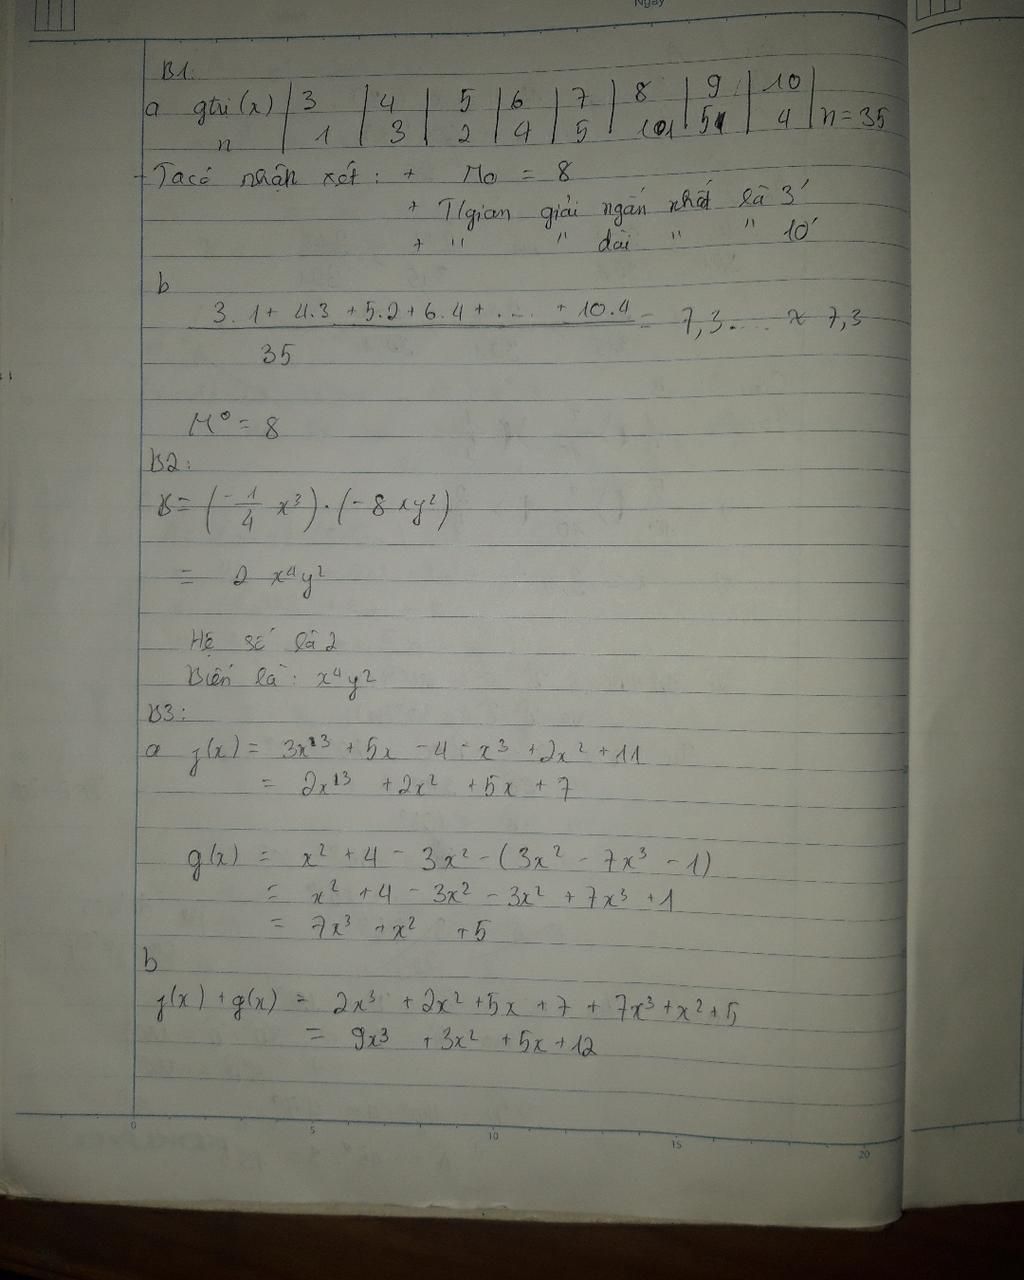 Ngày
B1:
a gtrị(x) | 3 | 4 | 5 | 6 | 7 | 8 | 9 | 10 |
n | 1 | 3 | 2 | 4 | 5 | | 5 | 4 | n = 35
Ta có nhận xét : + Mo = 8
+ T/gian giải ngắn nhất là 3'
+ " " dài " " 10'
b
3.1+ 4.3 +5.2+6.4+.... + 10.4 = 7,3.... ≈ 7,3
35
M° = 8
B2:
B = (-1/4 x³).(-8xy²)
= 2 x⁴y²
Hệ số là 2
Biến là : x⁴y²
B3:
a f(x) = 3x³ + 5x - 4 - x³ +2x² +11
= 2x³ +2x² +5x +7
g(x) = x² +4 - 3x² - (3x² - 7x³ - 1)
= x² +4 - 3x² - 3x² + 7x³ +1
= 7x³ +x² +5
b
f(x) + g(x) = 2x³ +2x² +5x +7 + 7x³ +x² +5
= 9x³ +3x² +5x +12
0 5 10 15 20